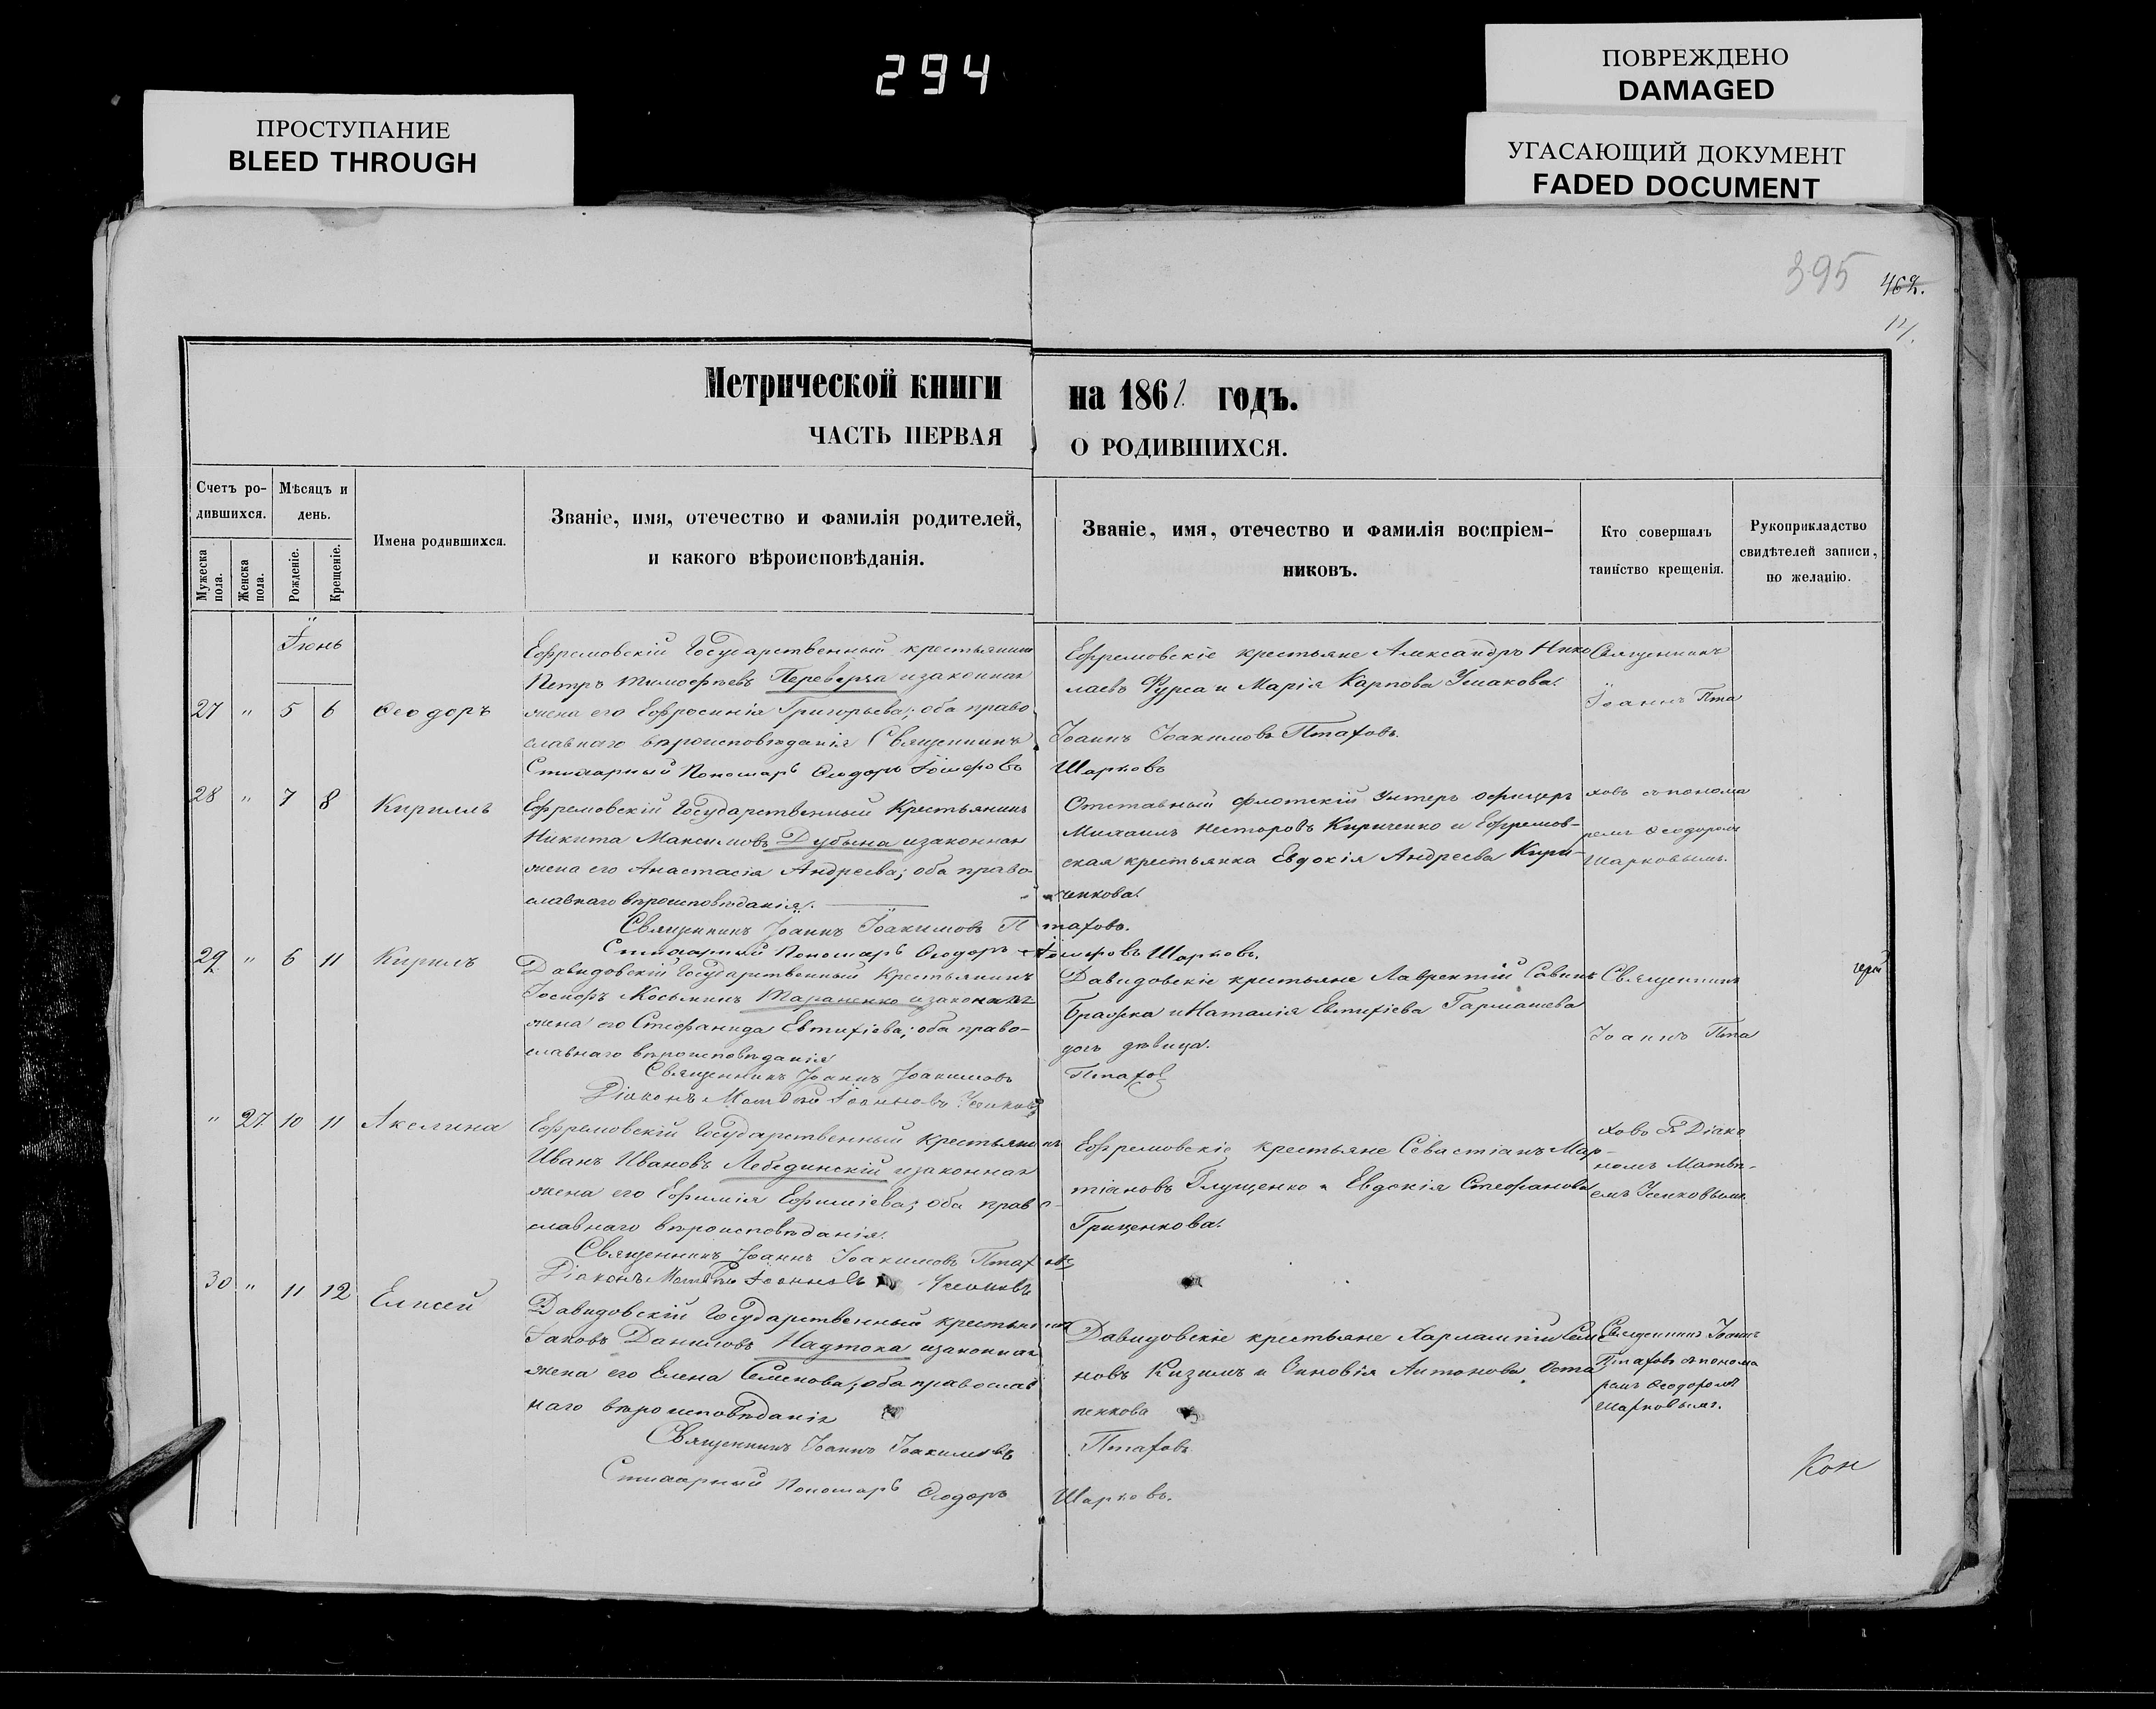 294
ПРОСТУПАНИЕ
BLEED THROUGH
ПОВРЕЖДЕНО
DAMAGED
УГАСАЮЩИЙ ДОКУМЕНТ
FADED DOCUMENT
395 462.
Метрической книги на 1861 годъ.
ЧАСТЬ ПЕРВАЯ О РОДИВШИХСЯ.
Счетъ ро-
дившихся.
Мужеска
пола.
Женска
пола.
Мѣсяцъ и
день.
Рожденіе.
Крещеніе.
Имена родившихся.
Званіе, имя, отечество и фамилія родителей,
и какого вѣроисповѣданія.
Званіе, имя, отечество и фамилія воспріем-
никовъ.
Кто совершалъ
таинство крещенія.
Рукоприкладство
свидѣтелей записи,
по желанію.
Іюнь
27 " 5 6 Ѳеодоръ
Ефремовскій Государственный крестьянинъ
Петръ Тимофѣевъ Переверза изаконная
жена его Евфросинія Григорьева; оба право
славнаго вѣроисповѣданія Священникъ
Стихарный Пономарь Ѳеодоръ
Ефремовскіе крестьяне Александръ Нико
лаевъ Фурса и Марія Карпова Ушакова.
Іоаннъ Іоакимовъ Птаховъ.
Шарковъ
Священникъ
Іоаннъ Пта
28 " 7 8 Кириллъ
Ефремовскій Государственный Крестьянинъ
Никита Максимовъ Дубына изаконная
жена его Анастасія Андреева; оба право-
славнаго вѣроисповѣданія.
Священникъ Іоаннъ Іоакимовъ Птаховъ.
Стихарный Пономарь Ѳеодоръ Шарковъ.
Отставный флотскій Унтеръ офицеръ
Михаилъ Несторовъ Кириченко и Ефремов-
ская крестьянка Евдокія Андреева Кири-
ченкова.
ховъ съ понома
ремъ Ѳеодоромъ
Шарковымъ.
29 " 6 11 Кирилъ
Давидовскій Государственный Крестьянинъ
Іосифъ Косьминъ Тараненко изаконная
жена его Стефанида Евтихіева; оба право-
славнаго вѣроисповѣданія
Священникъ Іоаннъ Іоакимовъ
Діаконъ Матвѣй Іоанновъ
Давидовскіе крестьяне Лаврентій Савинъ
Бражка и Наталія Евтихіева Гармашева
дочь дѣвица.
Птахов
Священникъ
Іоаннъ Пта
" 27 10 11 Акелина
Ефремовскій Государственный Крестьянинъ
Иванъ Ивановъ Лебединскій изаконная
жена его Ефимія Ефиміева; оба право-
славнаго вѣроисповѣданія.
Священникъ Іоаннъ Іоакимовъ Птаховъ
Діаконъ Матвѣй Іоанновъ
Ефремовскіе крестьяне Севастіанъ Мар-
тіановъ Глущенко и Евдокія Стефанова
Гриценкова.
ховъ съ Діако
номъ Матвѣ-
емъ
30 " 11 12 Елисей
Давидовскій Государственный крестьянинъ
Іаковъ Даниловъ Надтока изаконная
жена его Елена Семенова; оба православ
наго вѣроисповѣданія
Священникъ Іоаннъ Іоакимовъ
Стихарный Пономарь Ѳеодоръ
Давидовскіе крестьяне Харлампій Семе
новъ Кизимъ и Антонова Оста
пенкова
Птаховъ
Шарковъ.
Священникъ Іоаннъ
Птаховъ съ понома
ремъ Ѳеодоромъ
Шарковымъ.
Кон